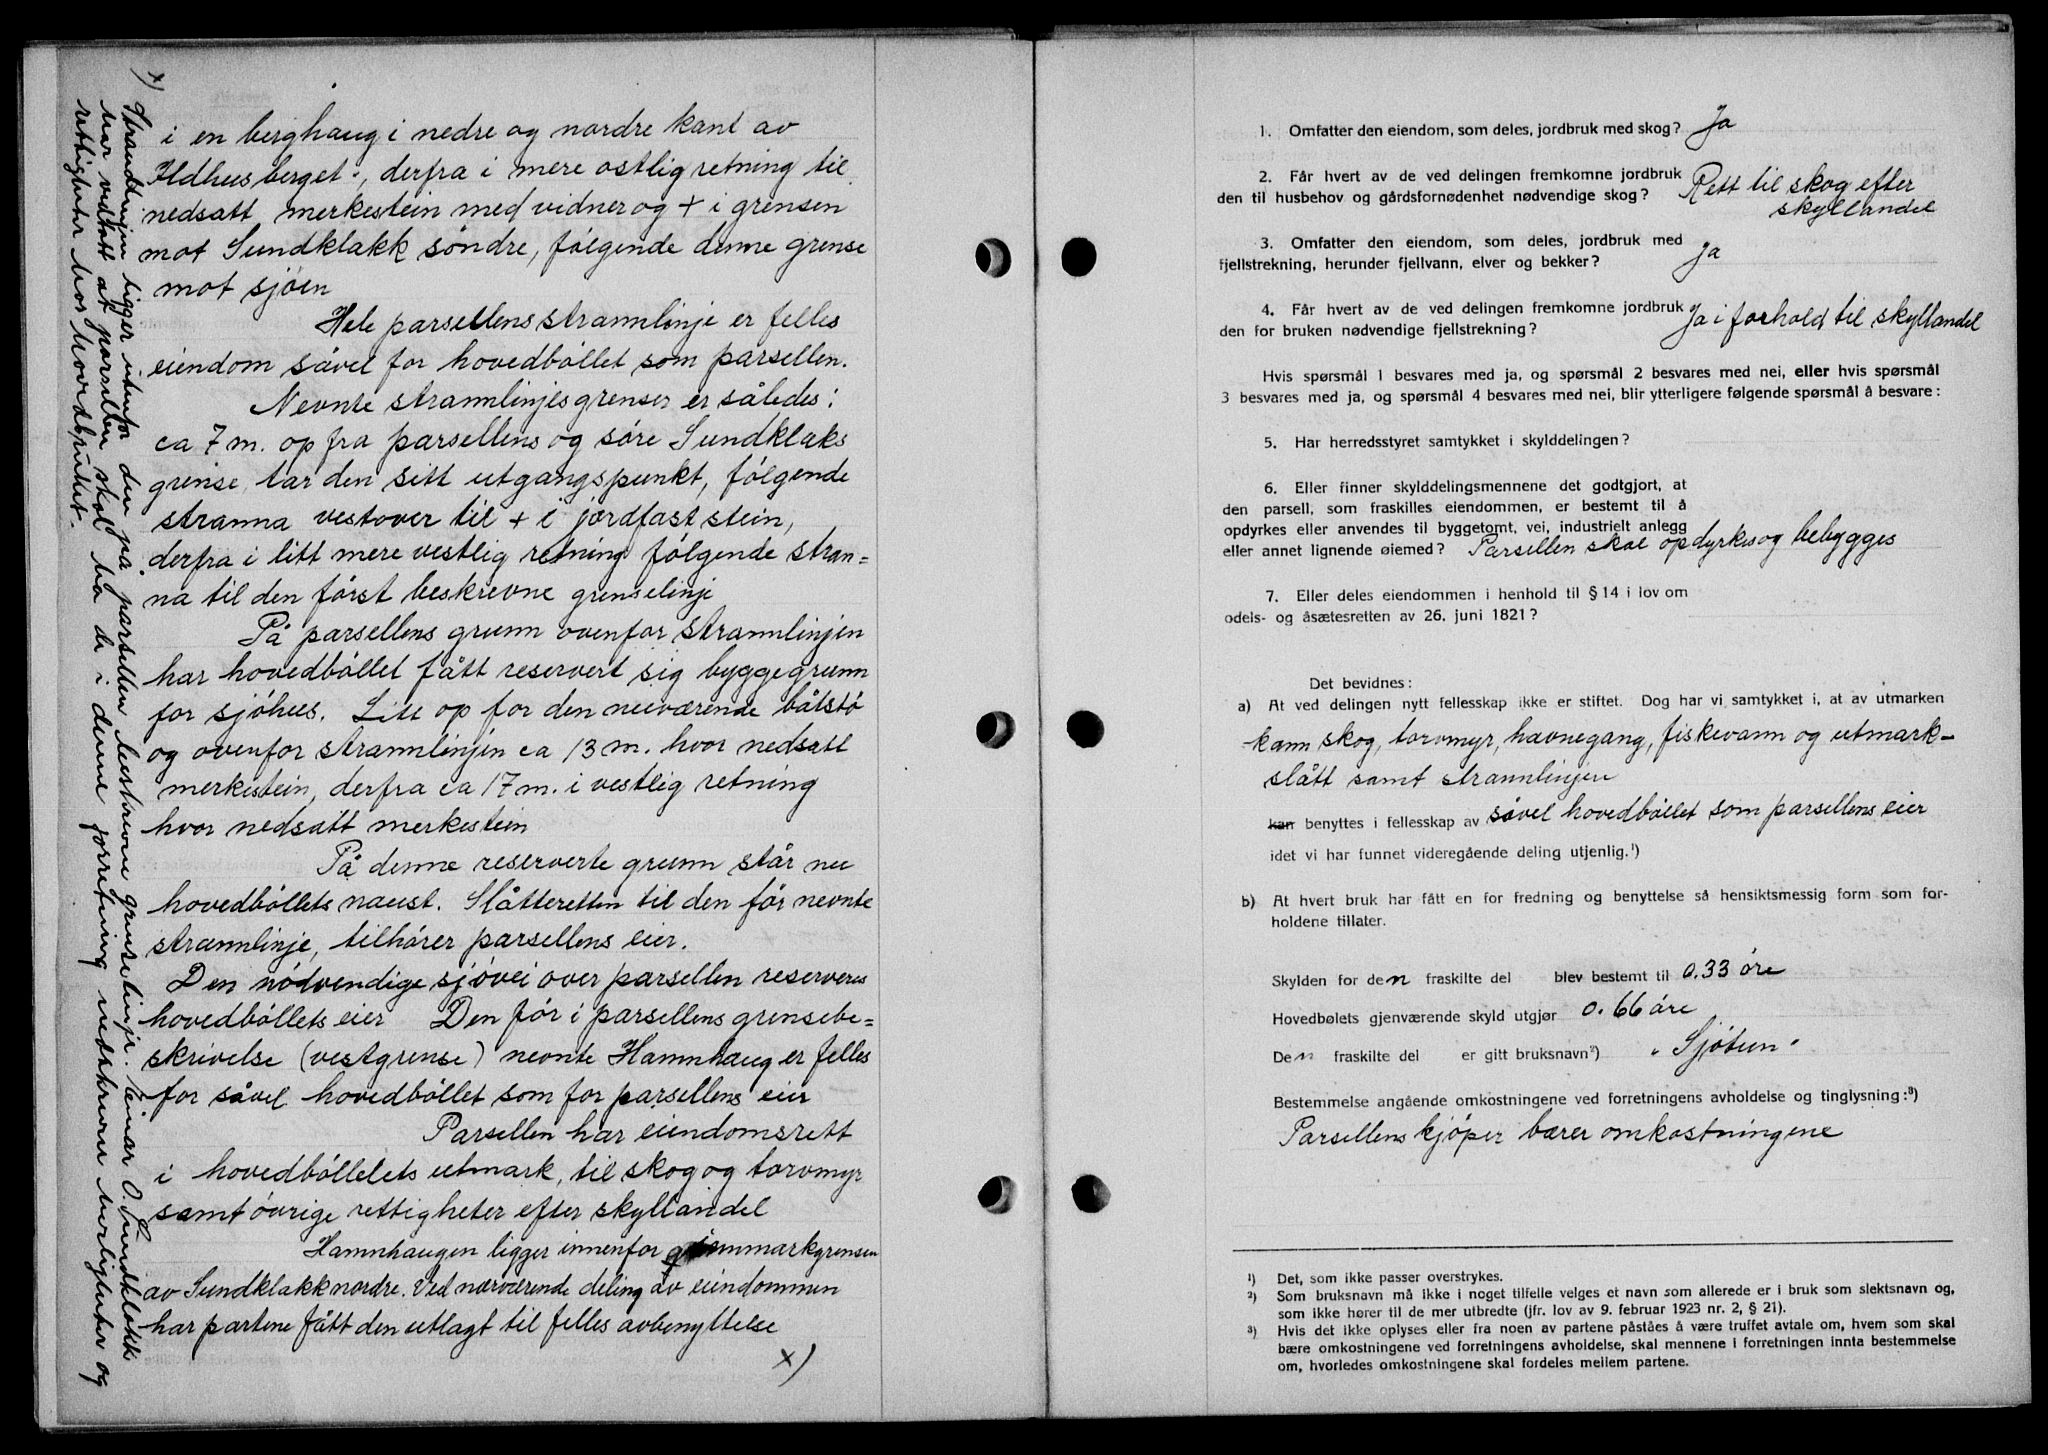 i en berghaug i nedre og nordre kant av
Ildhusberget:, derfra i mere østlig retning til
nedsatt merkestein med vidner og + i grensen
mot Sundklakk søndre, følgende denne grense
mot sjøen
Hele parsellens strannlinje er felles
eiendom såvel for hovedbøllet som parsellen.
Nevnte strannlinjes grenser er således:
ca 7 m. op fra parsellens og søre Sundklaks
grense, tar den sitt utgangspunkt, følgende
stranna vestover til + i jordfast stein,
derfra i litt mere vestlig retning følgende stran=
na til den først beskrevne grenselinje
På parsellens grunn ovenfor strannlinjen
har hovedbøllet fått reservert sig byggegrunn
for sjøhus. Litt op for den nuværende båtstø
og ovenfor strannlinjen ca 13 m. hvor nedsatt
merkestein, derfra ca 17 m. i vestlig retning
hvor nedsatt merkestein
På denne reserverte grunn står nu
hovedbøllets naust. Slåtteretten til den før nevnte
strannlinje, tilhører parsellens eier.
Den nødvendige sjøvei over parsellen reserveres
hovedbøllets eier Den før i parsellens grensebe=
skrivelse (vestgrense) nevnte Hamnhaug er felles
for såvel hovedbøllet som for parsellens eier
Parsellen har eiendomsrett
i hovedbøllelets utmark, til skog og torvmyr
samt øvrige rettigheter efter skyllandel
Hamnhaugen ligger innenfor innmarkgrensen
av Sundklakk nordre. Ved nærværende deling av eiendommen
har partene fått den utlagt til felles avbenyttelse
x)
x) Strandlinjen ligger utenfor den på parsellen beskrevne grenselinje. Einar O. Sundklakk
har vedtatt at parsellen skal ha de i denne forretning nedskrevne herligheter og
rettigheter hos hovedbruket.
1. Omfatter den eiendom, som deles, jordbruk med skog? Ja
2. Får hvert av de ved delingen fremkomne jordbruk
den til husbehov og gårdsfornødenhet nødvendige skog? Rett til skog efter
skyllandel
3. Omfatter den eiendom, som deles, jordbruk med
fjellstrekning, herunder fjellvann, elver og bekker? Ja
4. Får hvert av de ved delingen fremkomne jordbruk
den for bruken nødvendige fjellstrekning? Ja i forhold til skyllandel
Hvis spørsmål 1 besvares med ja, og spørsmål 2 besvares med nei, eller hvis spørsmål
3 besvares med ja, og spørsmål 4 besvares med nei, blir ytterligere følgende spørsmål å besvare:
5. Har herredsstyret samtykket i skylddelingen?
6. Eller finner skylddelingsmennene det godtgjort, at
den parsell, som fraskilles eiendommen, er bestemt til å
opdyrkes eller anvendes til byggetomt, vei, industrielt anlegg
eller annet lignende øiemed? Parsellen skal opdyrkes og bebygges
7. Eller deles eiendommen i henhold til § 14 i lov om
odels- og åsætesretten av 26. juni 1821?
Det bevidnes:
a) At ved delingen nytt fellesskap ikke er stiftet. Dog har vi samtykket i, at av utmarken
kann skog, torvmyr, havnegang, fiskevann og utmark-
slått samt strannlinjen
kan benyttes i fellesskap av såvel hovedbøllet som parsellens eier
idet vi har funnet videregående deling utjenlig.¹)
b) At hvert bruk har fått en for fredning og benyttelse så hensiktsmessig form som for-
holdene tillater.
Skylden for den fraskilte del blev bestemt til 0.33 øre
Hovedbølets gjenværende skyld utgjør 0.66 øre
Den fraskilte del er gitt bruksnavn²) "Sjøtun"
Bestemmelse angående omkostningene ved forretningens avholdelse og tinglysning:³)
Parsellens kjøper bærer omkostningene
¹) Det, som ikke passer overstrykes.
²) Som bruksnavn må ikke i noget tilfelle velges et navn som allerede er i bruk som slektsnavn og,
som ikke hører til de mer utbredte (jfr. lov av 9. februar 1923 nr. 2, § 21).
³) Hvis det ikke oplyses eller fra noen av partene påståes å være truffet avtale om, hvem som skal
bære omkostningene ved forretningens avholdelse, skal mennene i forretningen innta bestemmelse
om, hvorledes omkostningene skal fordeles mellem partene.